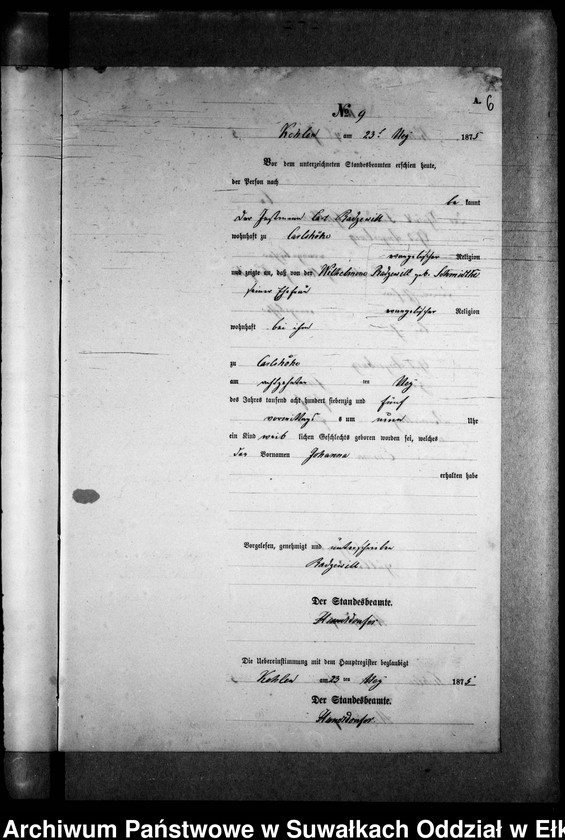 A. 6
No 9
Kehlen am 23t Mey 1875
Vor dem unterzeichneten Standesbeamten erschien heute,
der Person nach
be kannt
der Instmann Carl Radzewill
wohnhaft zu Carlshöhe
evangelischer Religion
und zeigte an, daß von der Wilhelmine Radzewill geb. Schmidtke
seiner Ehefrau
evangelischer Religion
wohnhaft bei ihm
zu Carlshöhe
am achtzehnten ten Mey
des Jahres tausend acht hundert siebenzig und fünf
vormittags um neun Uhr
ein Kind weib lichen Geschlechts geboren worden sei, welches
den Vornamen Johanna
erhalten habe
Vorgelesen, genehmigt und unterschrieben
Radzewill
Der Standesbeamte.
Die Uebereinstimmung mit dem Hauptregister beglaubigt
Kehlen am 23 ten Mey 1875
Der Standesbeamte.
Archiwum Państwowe w Suwałkach Oddział w Ełk